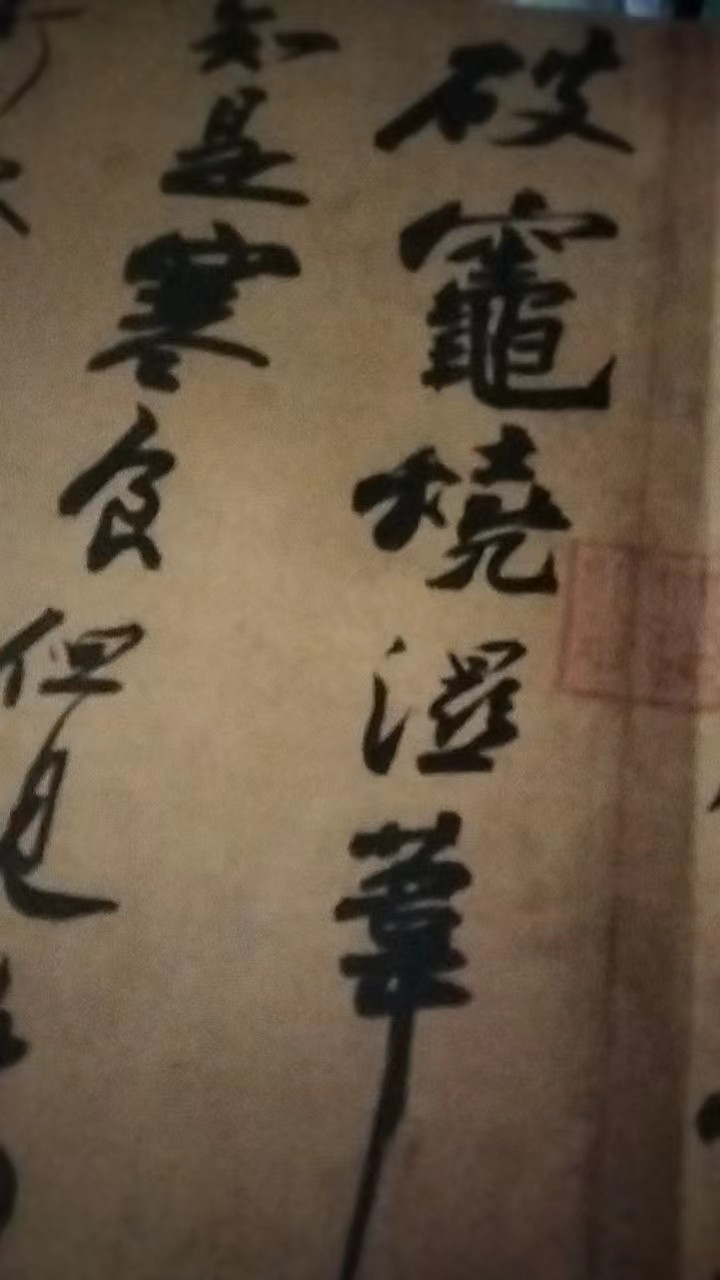 破竈燒溼葦
知是寒食但見